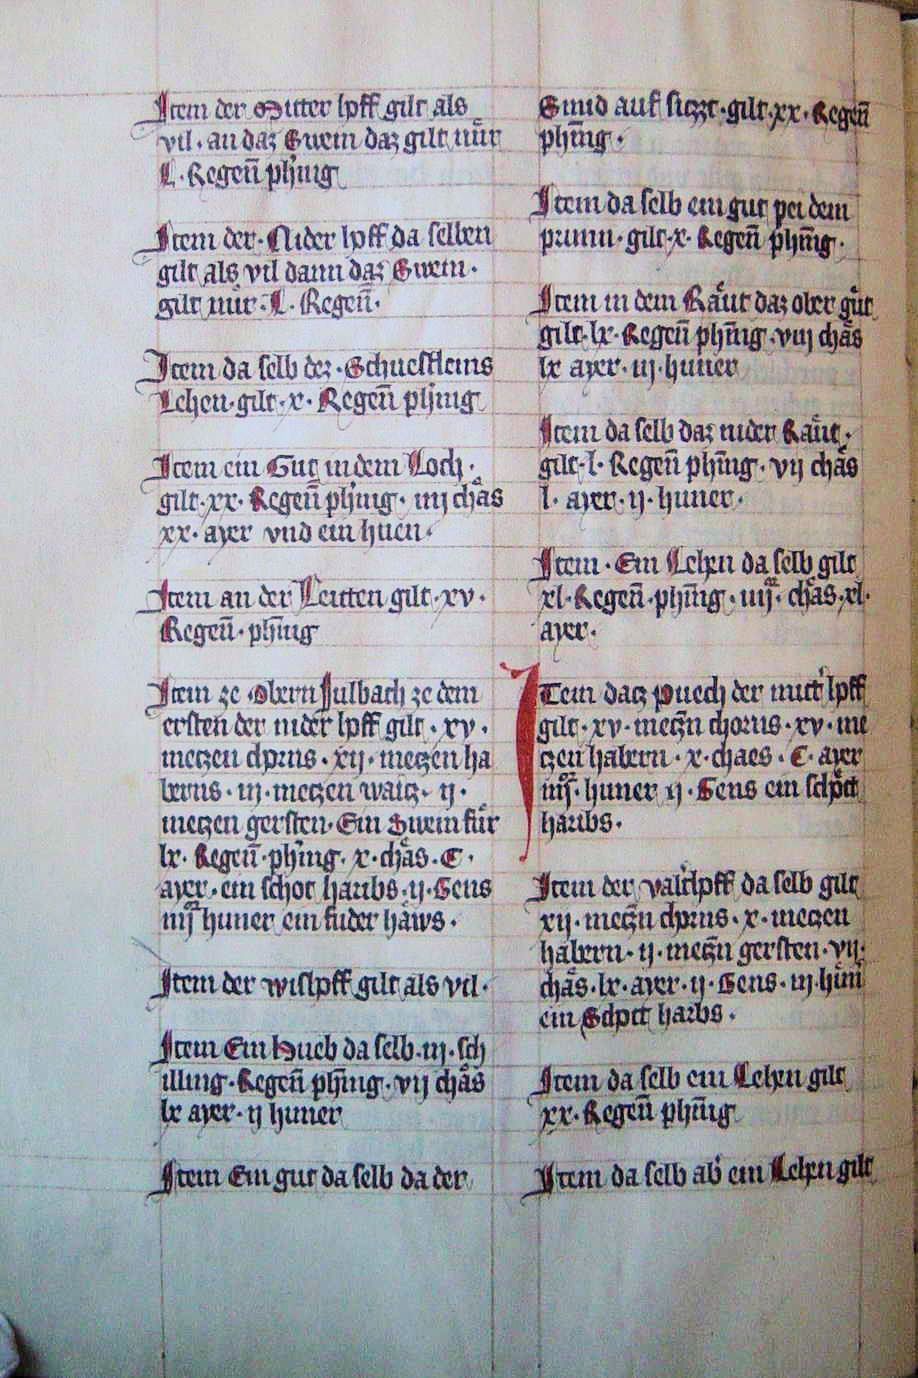 Item der Mitter hff gilt als
vil · an daz Swein daz gilt nůr
L · Regeñ phing
Item der · Nider hff da selben
gilt als vil dann daz Swein ·
gilt nůr · L · Regeñ ·
Item da selb der · Schuestleins
Lehen · gilt · x · Regeñ phing
Item ein Gut in dem Loch ·
gilt · xx · Regeñ phing · iiij chås
xx · ayer vnd ein huen ·
Item an der Leitten gilt · xv ·
Regeñ · phm̄g
Item ze Obern Julbach ze dem
ersten der nider hff gilt · xv ·
metzen chorns · xij · metzen ha
berns · iij · metzen waitz · ij ·
metzen gersten · Ein Swein für
lx · Regeñ · phing · x · chås · C ·
ayer · ein schot haribs · ij · Gens
iiij huner ein fuder håws ·
Item der wishff gilt als vil ·
Item Ein Hueb da selb · iij · sch
illing · Regeñ phm̄g · vij chås
lx ayer · ij huner
Item Ein gut da selb da der
Smid auf siczzt · gilt · xx · Regeñ
phm̄g ·
Item da selb ein gut pei dem
prunn · gilt · x · Regeñ phm̄g ·
Item in dem Råut daz ober gůt
gilt · lx · Regeñ phm̄g · viij chås
lx ayer · iij · huner
Item da selb daz nider Råut ·
gilt · l · Regeñ phm̄g · vij chås
l · ayer · ij · huner ·
Item · Ein Lehen da selb gilt
xl · Regeñ · phm̄g · iiij · chås · xl ·
ayer ·
ITem datz Puech der mitt' hff
gilt · xv · metzn̄ chorns · xv · me
tzen habern · x · chaes · C · ayer
huner ij · Gens ein schött
haribs ·
Item der hff da selb gilt
xij · metzn̄ chorns · x · metzen
habern · ij · metzn̄ gersten · vij ·
chås · lx · ayer · ij · Gens · iij · hůn̄
ein Schott harbs ·
Item da selb ein Lehen gilt
xx · Regeñ phm̄g
Item da selb ab' ein Lehen gilt